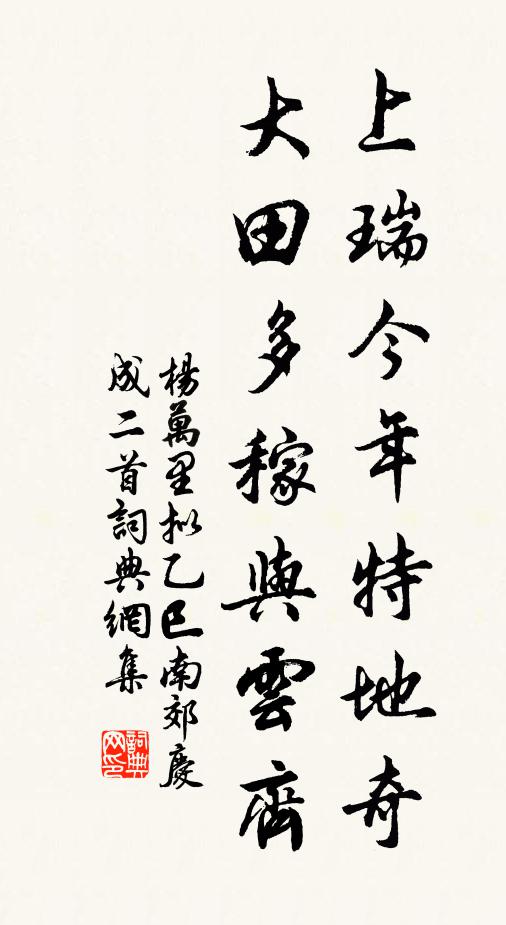 上瑞今年特地奇
大田多稼與雲齊
楊萬里拟乙巳南郊慶
成二首詞典網集
詞典网印